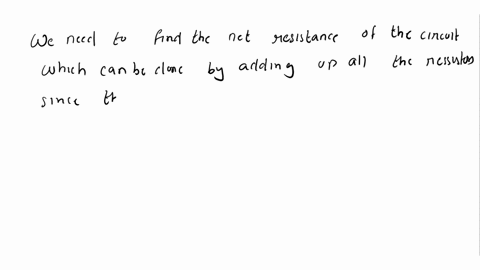 We need to find the net resistance of the circuit
which can be done by adding up all the resistors
since th